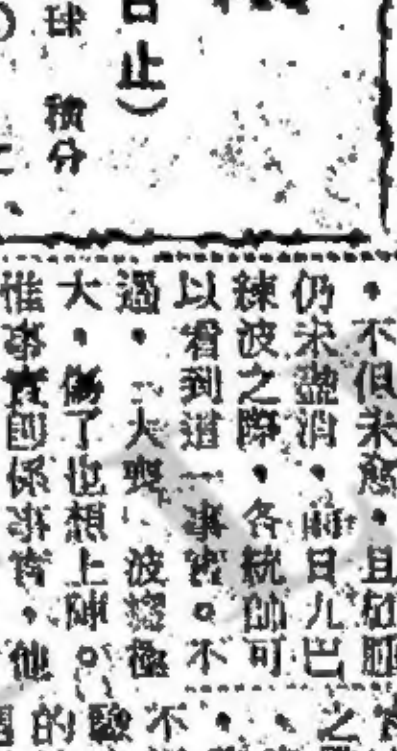 日止）
球　積分
・不但未愈・且紅腫
仍未盡消・前日九巴
練波之際・各統帥可
以看到這一事實。不
過・「大喫」波癮極
大・傷了也想上陣。
惟事實即係事實・他
之
不
驗
的